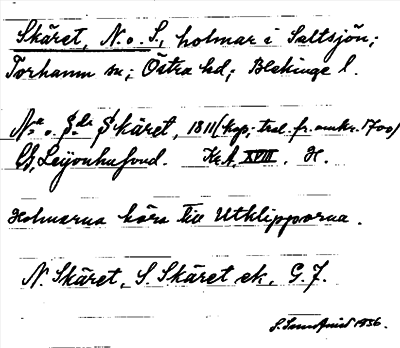 Skäret, N. o. S., holmar i Saltsjön;
Torhamn sn; Östra hd; Blekinge l.
N:a o. S:dr Skäret, 1811 (kop. trol. fr. omkr. 1700)
Leijonhufvud. Kr. A. XVIII. H.
Holmarna höra till Utklipporna.
N. Skäret, S. Skäret ek. G. J.
1936.